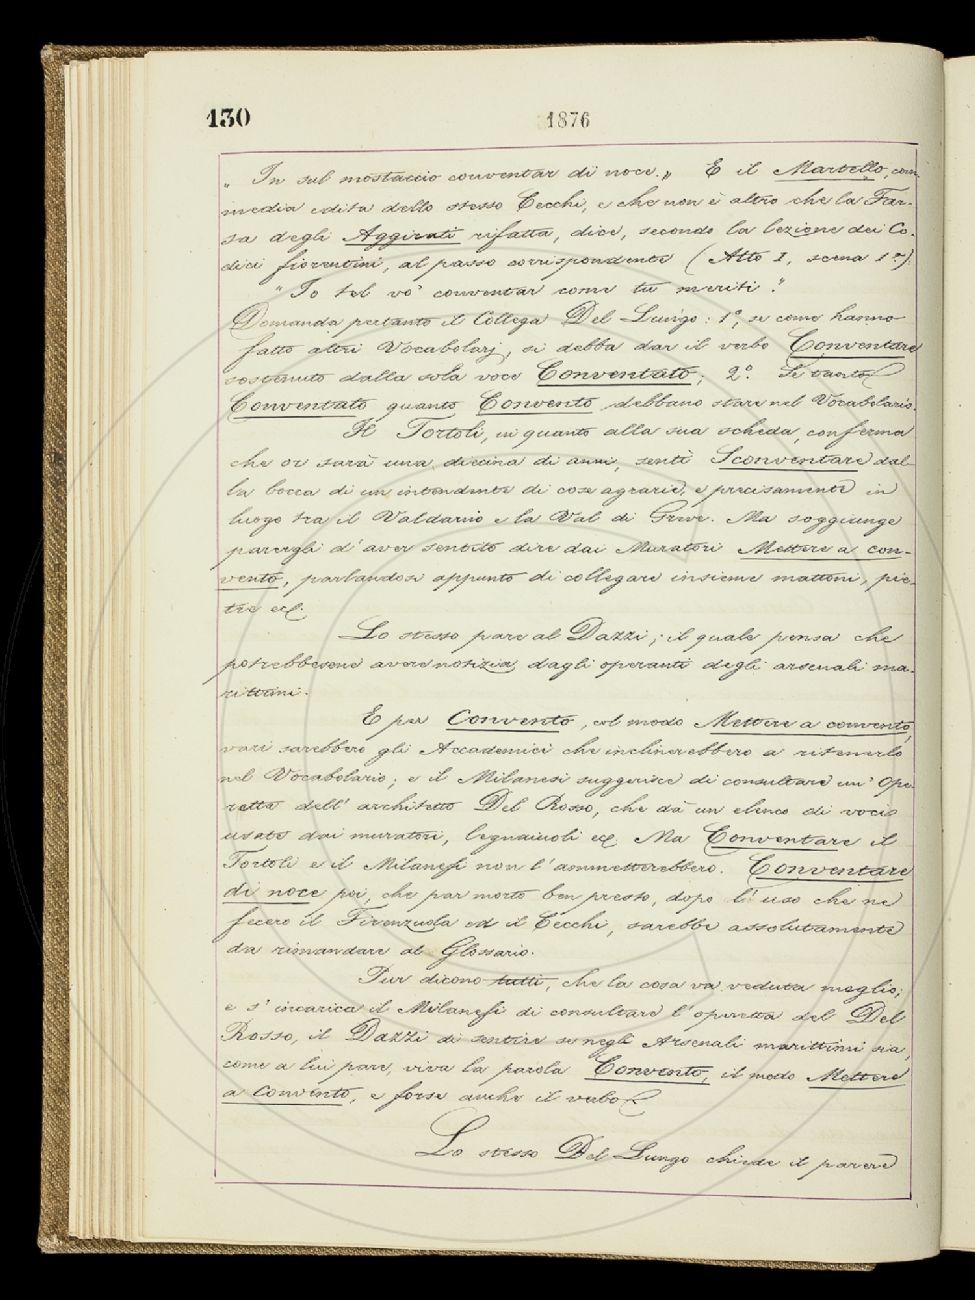 130
1876
„ In sul mostaccio conventar di noce. „ E il Martello, com-
media edita dello stesso Cecchi, e che non è altro che la Far-
sa degli Aggirati rifatta, dice, secondo la lezione dei Co-
dici fiorentini, al passo corrispondente (Atto I, scena 1ª)
" Io tel vo' conventar come tu meriti ".
Domanda pertanto il Collega Del Lungo: 1°, se come hanno
fatto altri Vocabolarj, si debba dar il verbo Conventare
sostenuto dalla sola voce Conventato; 2°. Se tanto
Conventato quanto Convento debbano stare nel Vocabolario.
Il Tortoli, in quanto alla sua scheda, conferma
che or sarà una diecina di anni, sentì Sconventare dal-
la bocca di un intendente di cose agrarie, e precisamente in
luogo tra il Valdarno e la Val di Greve. Ma soggiunge
parergli d'aver sentito dire dai Muratori Mettere a con-
vento, parlandosi appunto di collegare insieme mattoni, pie-
tre ec.
Lo stesso pare al Dazzi; il quale pensa che
potrebbesene avere notizia dagli operanti degli arsenali ma-
rittimi.
E per Convento, col modo Mettere a convento,
vari sarebbero gli Accademici che inclinerebbero a ritenerlo
nel Vocabolario; e il Milanesi suggerisce di consultare un' Ope-
retta dell' architetto Del Rosso, che dà un elenco di voci
usate dai muratori, legnaiuoli ec. Ma Conventare il
Tortoli e il Milanesi non l'ammetterebbero. Conventare
di noce poi, che par morto ben presto, dopo l' uso che ne
fecero il Firenzuola ed il Cecchi, sarebbe assolutamente
da rimandare al Glossario.
Pur dicono tutti, che la cosa va veduta meglio;
e s' incarica il Milanesi di consultare l' operetta del Del
Rosso, il Dazzi di sentire se negli Arsenali marittimi sia,
come a lui pare, viva la parola Convento, il modo Mettere
a convento, e forse anche il verbo
Lo stesso Del Lungo chiede il parere